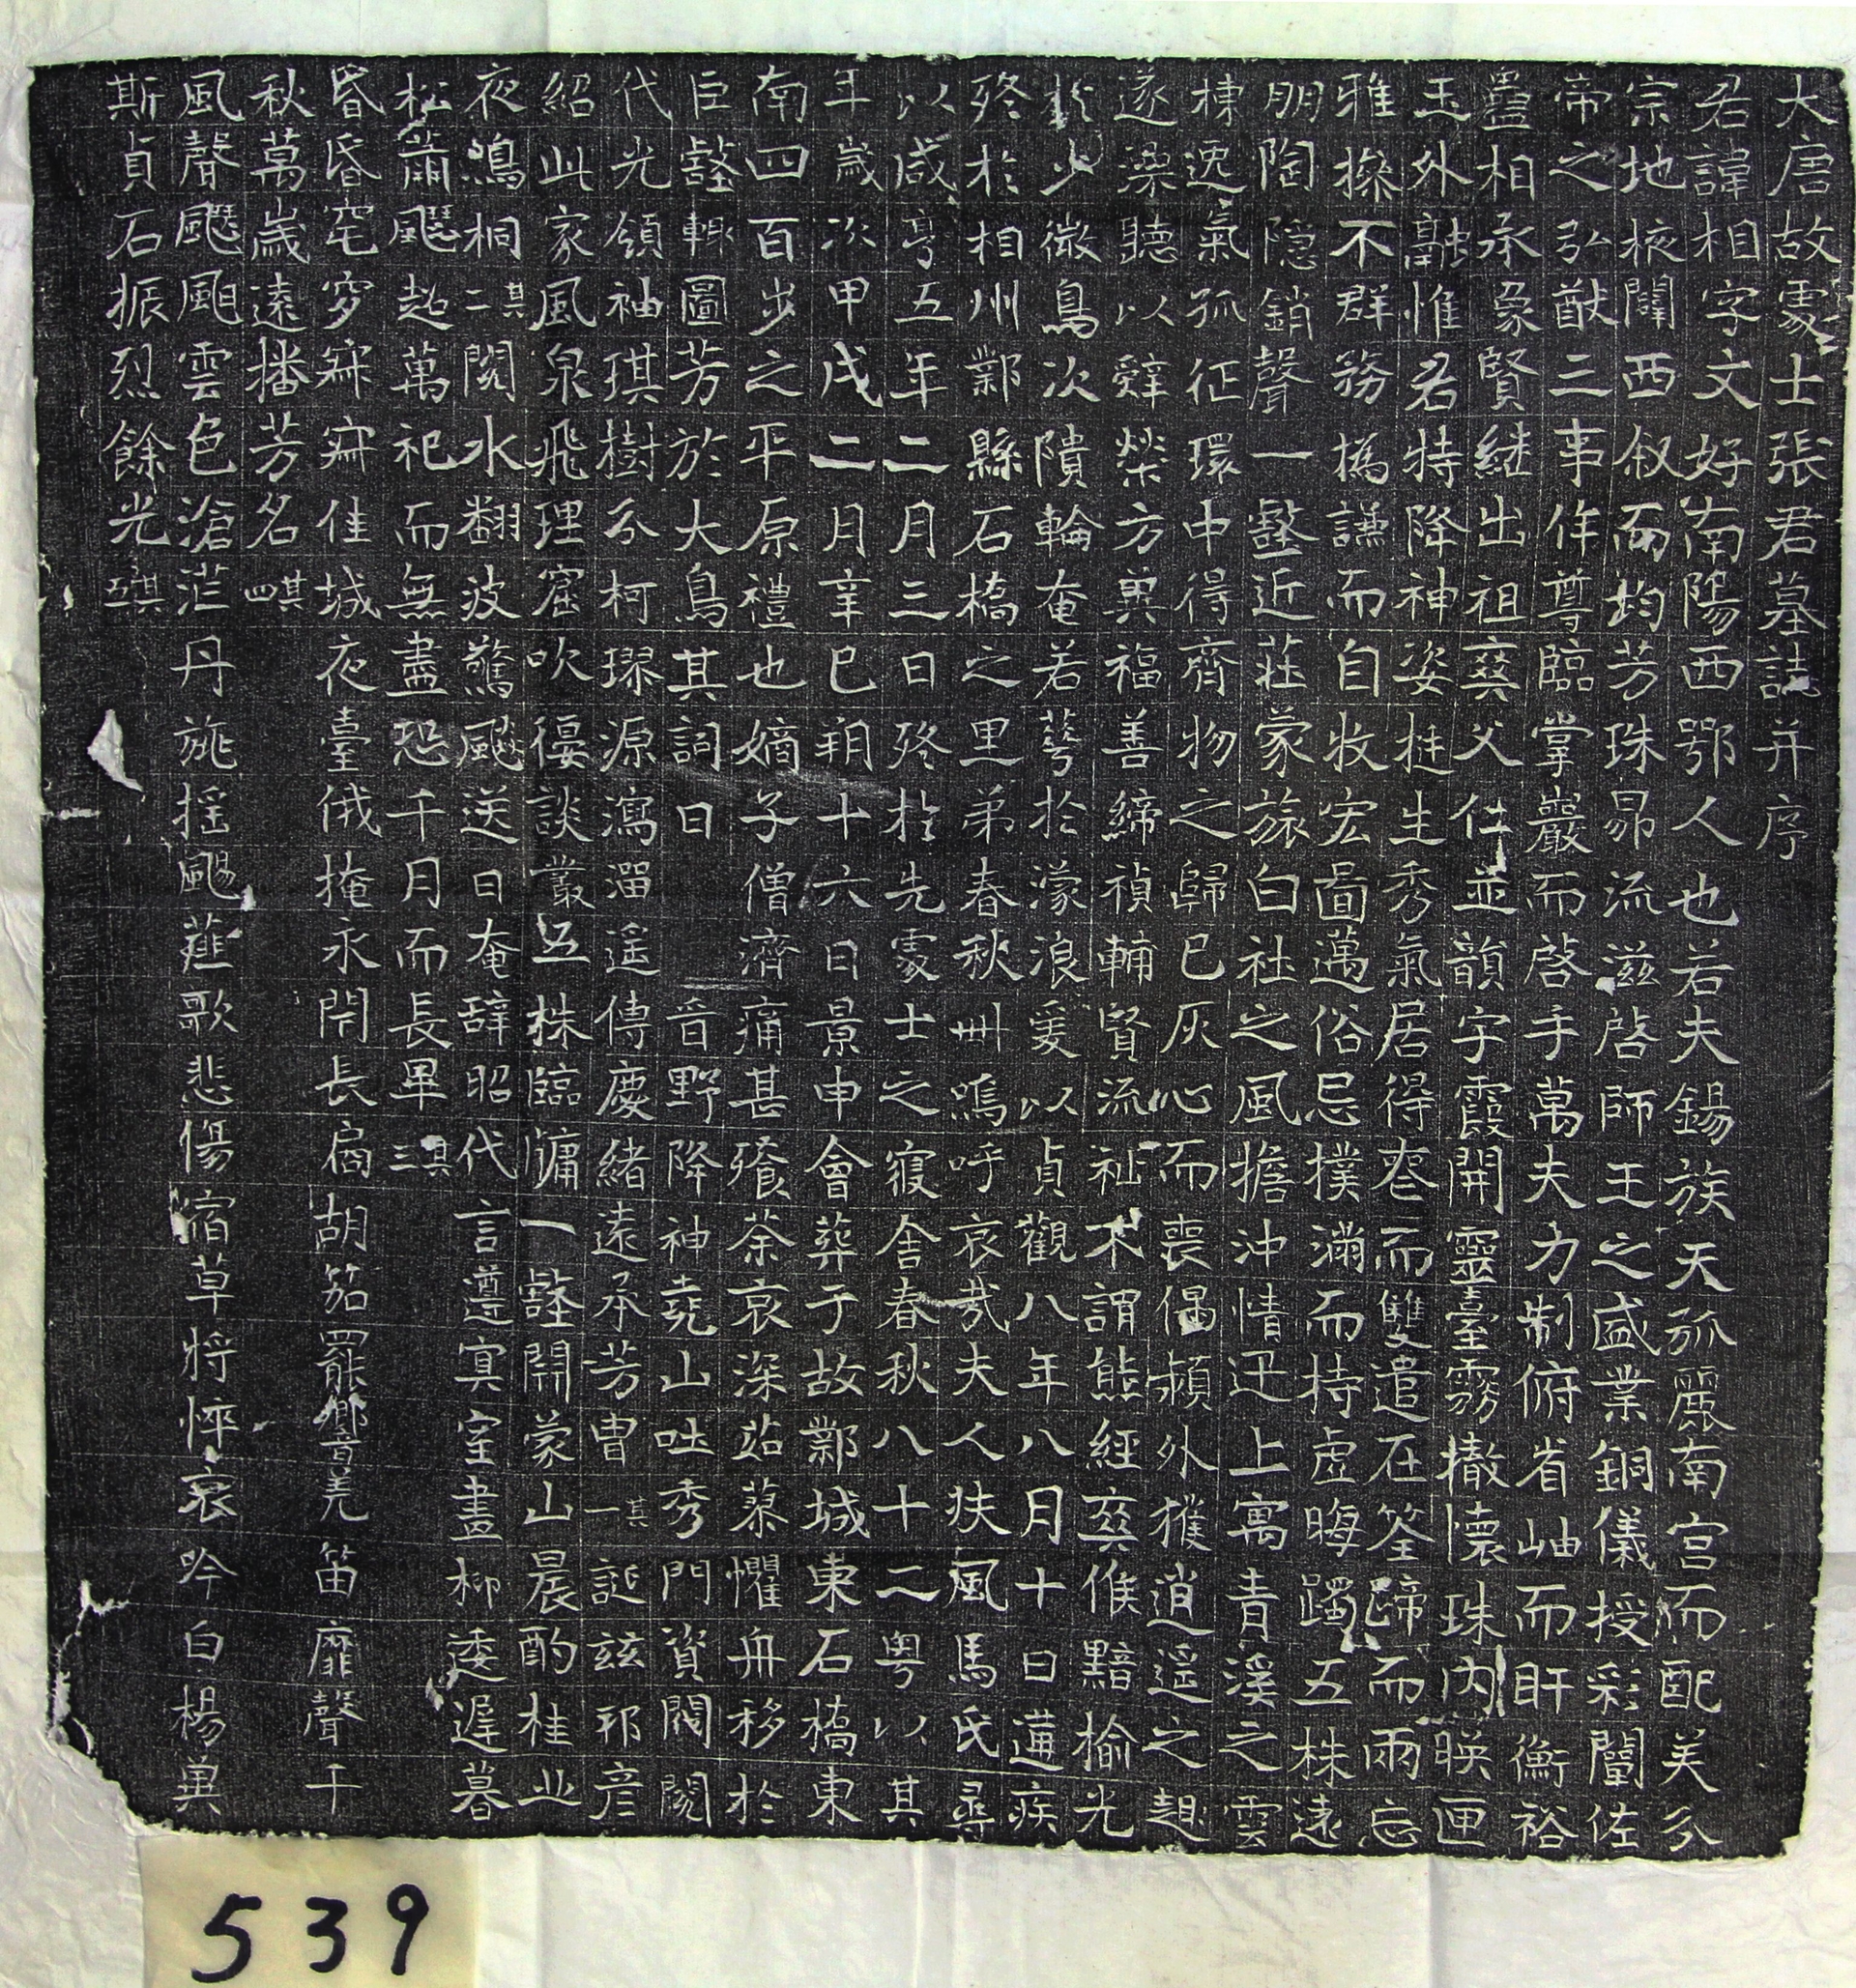 大唐故處士張君墓誌并序
君諱相字文好南陽西鄂人也若夫錫族天孤麗南宫而配美分
宗地掖闢西叙而均芳珠昴流滋啓師王之盛業銅儀授彩闡佐
帝之弘猷三事侔尊臨掌巖而啓手萬夫力制俯省岫而盱衡裕
蠱相承象賢継出祖葵父仁並韻宇霞開靈臺霧撤懷珠内暎匣
玉外融惟君特降神姿挺生秀氣居得壱而雙遣在筌蹄而兩忘
雅操不群務撝謙而自牧宏啚邁俗忌撲滿而持虚晦躅五株遠
朋陶隐銷聲一壑近莊蒙旅白社之風擔沖情迅上寓青溪之雲
棟逸氣孤征環中得齊物之歸已灰心而喪偶頻外摧逍遥之趣
遂滌聽以辤榮方兾福善締禎輔賢流祉不謂熊經爽候黯揄光
於少微鳥次隤輪奄若萼於濛浪爰以貞觀八年八月十日遘疾
終於相州鄴縣石橋之里弟春秋卌嗚呼哀哉夫人扶風馬氏尋
以咸亨五年二月三日終於先處士之寢舍春秋八十二粤以其
年歲次甲戌二月辛巳朔十六日景申會葬于故鄴城東石橋東
南四百步之平原禮也嫡子僧濟痛甚飱荼哀深茹蓼懼舟移於
巨壑輙圖芳於大鳥其詞曰　昏野降神堯山吐秀門資閥閲
代光領袖琪樹分柯璆源瀉溜遥傳慶緒遠承芳胄其一誕兹邦彦
紹此家風泉飛理窟吹偃談叢五株臨牖一壑開蒙山晨酌桂
夜鳴桐其二閲水翻波驚飈送日奄辞昭代言遵冥室畫柳逶遲暮
松蕭颸起萬祀而無盡恐千月而長畢其三
昏昏窀穸寐寐佳城夜臺俄掩永閇長扄胡笳罷響羌笛靡聲千
秋萬歲遠播芳名其四
風聲飋颸雲色滄茫丹旐揺颺薤歌悲傷宿草將悴哀吟白楊兾
斯貞石振烈餘光其五
539